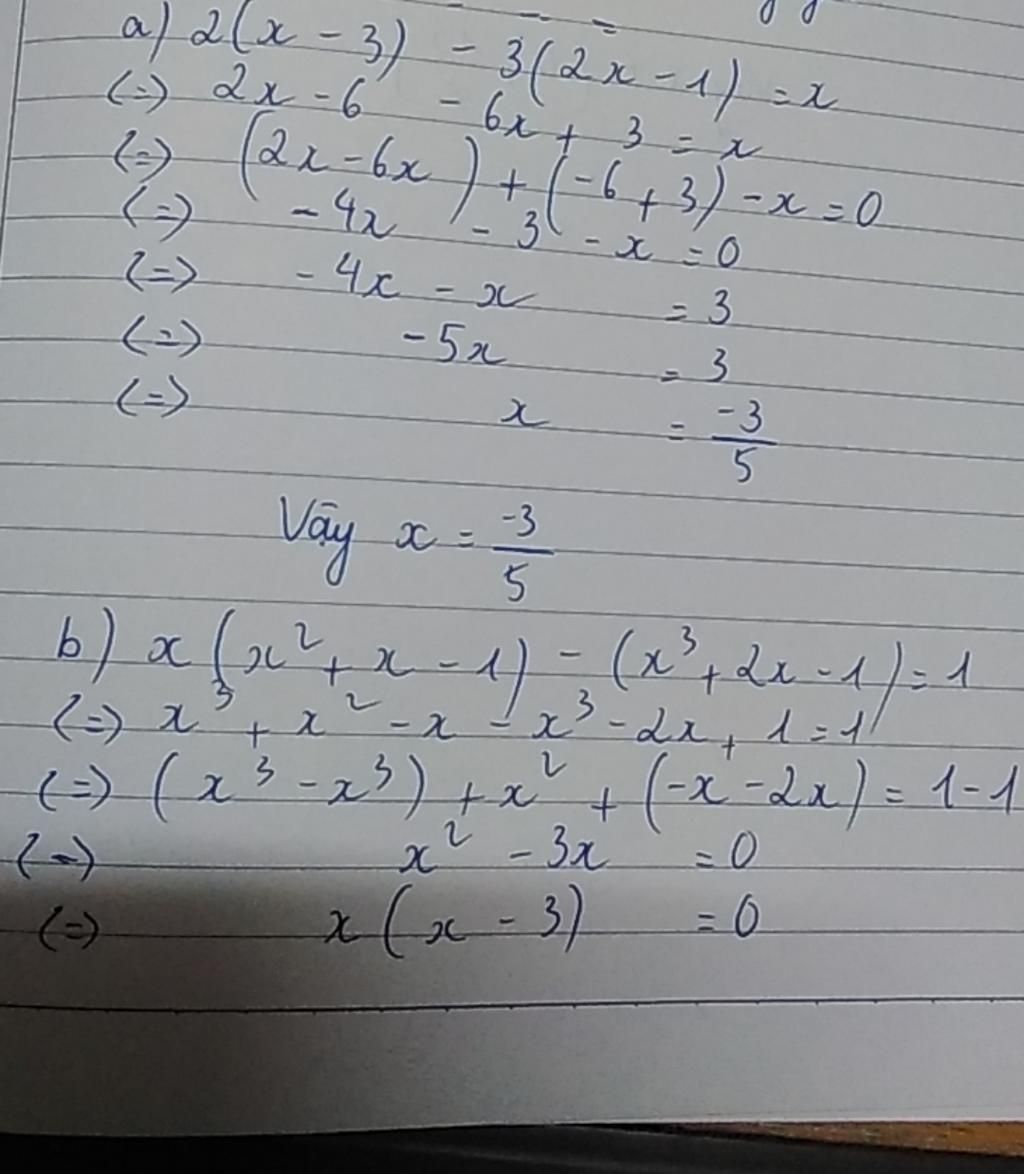 a) 2(x - 3) - 3(2x - 1) = x
(=) 2x - 6 - 6x + 3 = x
(=) (2x - 6x) + (-6 + 3) - x = 0
(=) -4x - 3 - x = 0
(=) -4x - x = 3
(=) -5x = 3
(=) x = -3/5
Vậy x = -3/5
b) x(x² + x - 1) - (x³ + 2x - 1) = 1
(=) x³ + x² - x - x³ - 2x + 1 = 1
(=) (x³ - x³) + x² + (-x - 2x) = 1 - 1
(=) x² - 3x = 0
(=) x(x - 3) = 0